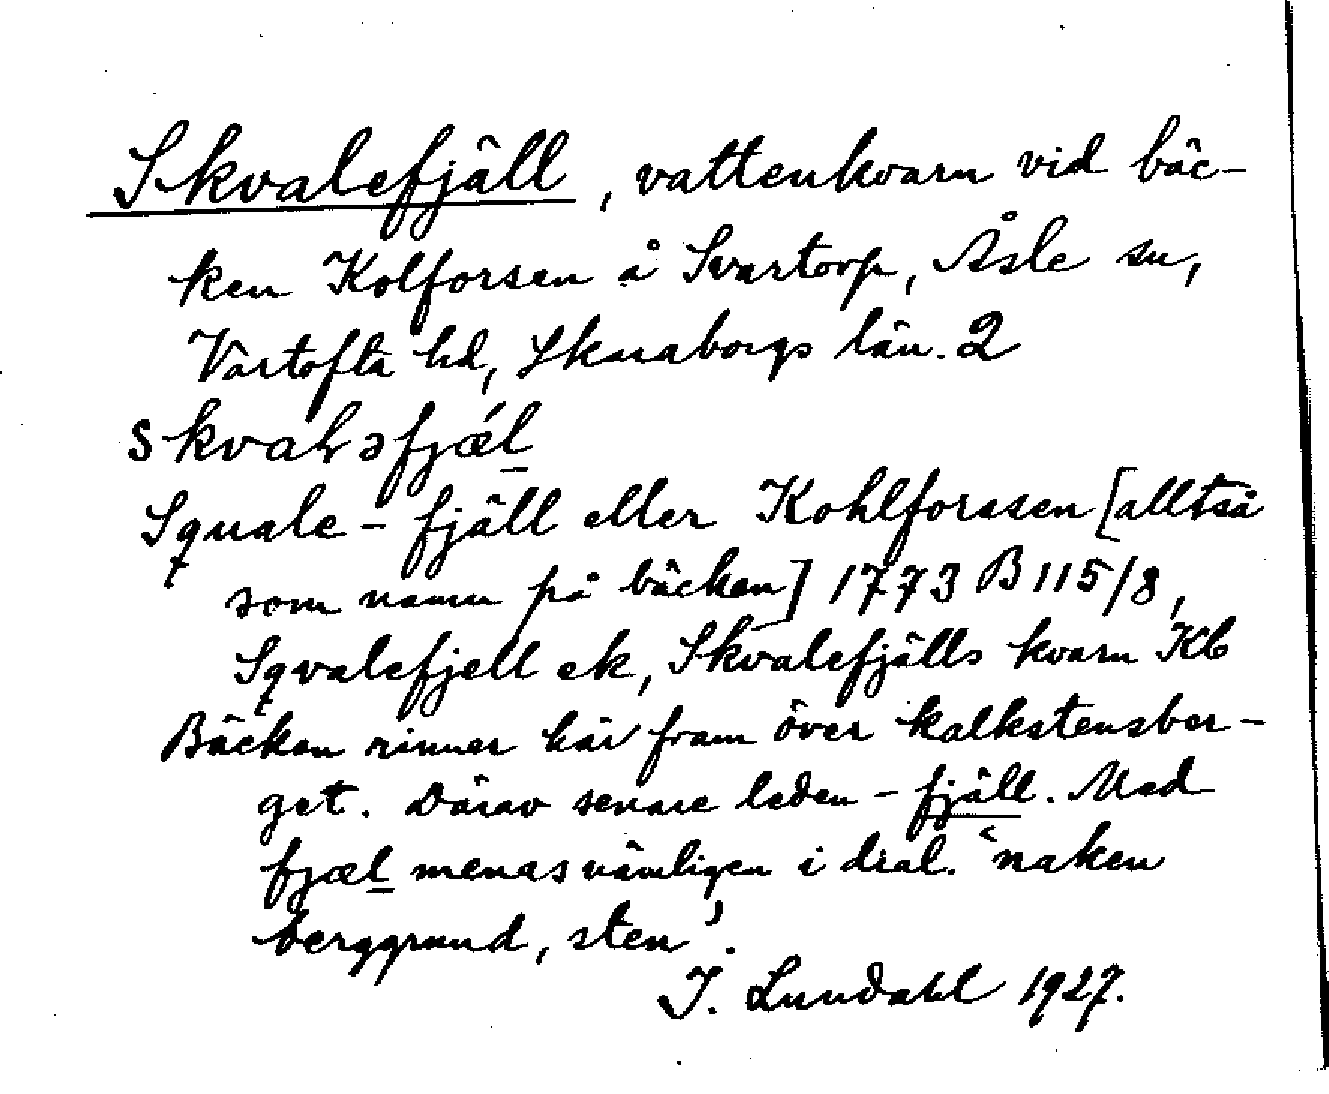 Skvalefjäll, vattenkvarn vid bäc-
ken Kolforsen å Svartorp, Åsle sn,
Vartofta hd, Skaraborgs län. 2
skvaləfjǽl
Squale-fjäll eller Kohlforssen [alltså
som namn på bäcken] 1773 B 115/8,
Sqvalefjell ek, Skvalefjälls kvarn Kb
Bäcken rinner här fram över kalkstensber-
get. Därav senare leden -fjäll. Med
fjæl menas nämligen i dial. ‘naken
berggrund, sten’.
I. Lundahl 1927.